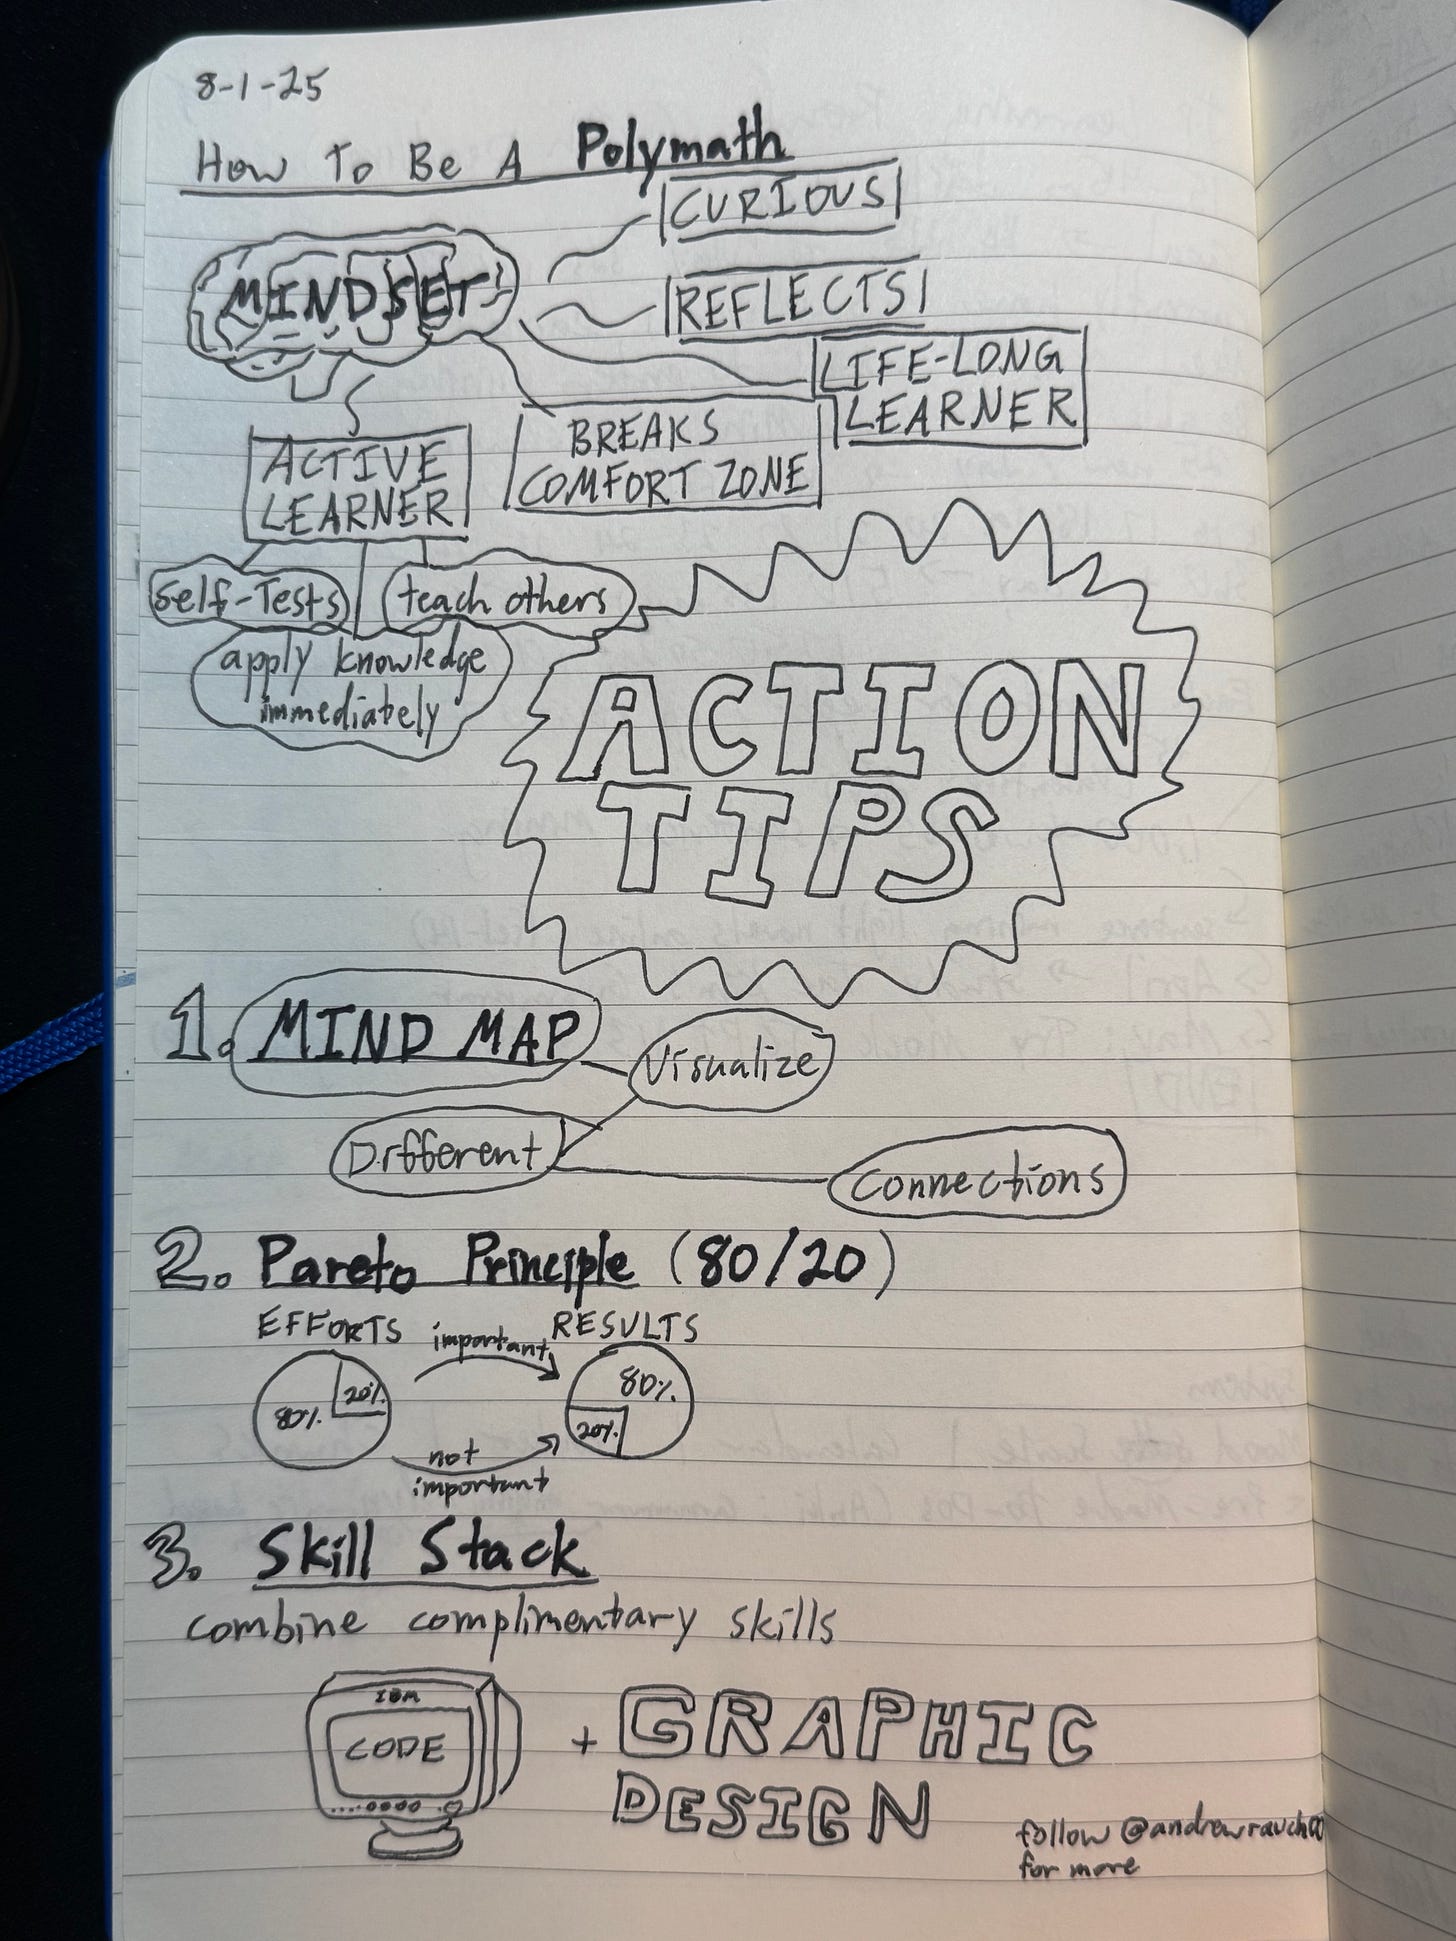 8-1-25
How To Be A Polymath
MINDSET
CURIOUS
REFLECTS
LIFE-LONG
LEARNER
BREAKS
COMFORT ZONE
ACTIVE
LEARNER
Self-Tests
teach others
apply knowledge
immediately
ACTION
TIPS
1. MIND MAP
Visualize
Different
Connections
2. Pareto Principle (80/20)
EFFORTS
important
RESULTS
20%
80%
80%
20%
not
important
3. Skill Stack
combine complimentary skills
IBM
CODE
+ GRAPHIC
DESIGN
follow @andrewrauch00
for more